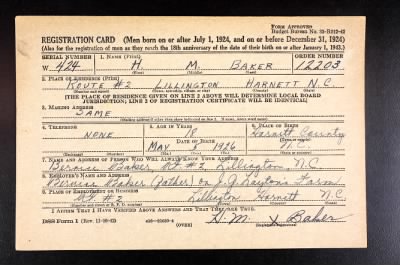 Form Approved
Budget Bureau No. 33-R012-42
REGISTRATION CARD (Men born on or after July 1, 1924, and on or before December 31, 1924)
(Also for the registration of men as they reach the 18th anniversary of the date of their birth on or after January 1, 1943.)
SERIAL NUMBER 1. NAME (Print) ORDER NUMBER
W. 424 H. M. BAKER 12203
(First) (Middle) (Last)
2. PLACE OF RESIDENCE (Print)
ROUTE #2 LILLINGTON HARNETT N.C.
[THE PLACE OF RESIDENCE GIVEN ON LINE 2 ABOVE WILL DETERMINE LOCAL BOARD
JURISDICTION; LINE 2 OF REGISTRATION CERTIFICATE WILL BE IDENTICAL]
3. MAILING ADDRESS
SAME
4. TELEPHONE 5. AGE IN YEARS 6. PLACE OF BIRTH
NONE 18 Harnett County
DATE OF BIRTH
MAY 1926 N.C.
7. NAME AND ADDRESS OF PERSON WHO WILL ALWAYS KNOW YOUR ADDRESS
Baker Rt #2 Lillington, N.C
8. EMPLOYER'S NAME AND ADDRESS
Baker (Father) on J.G. Layton's Farm
9. PLACE OF EMPLOYMENT OR BUSINESS
Rt #2 Lillington Harnett N.C
I AFFIRM THAT I HAVE VERIFIED ABOVE ANSWERS AND THAT THEY ARE TRUE.
DSS Form 1 (OVER) H. M. X Baker